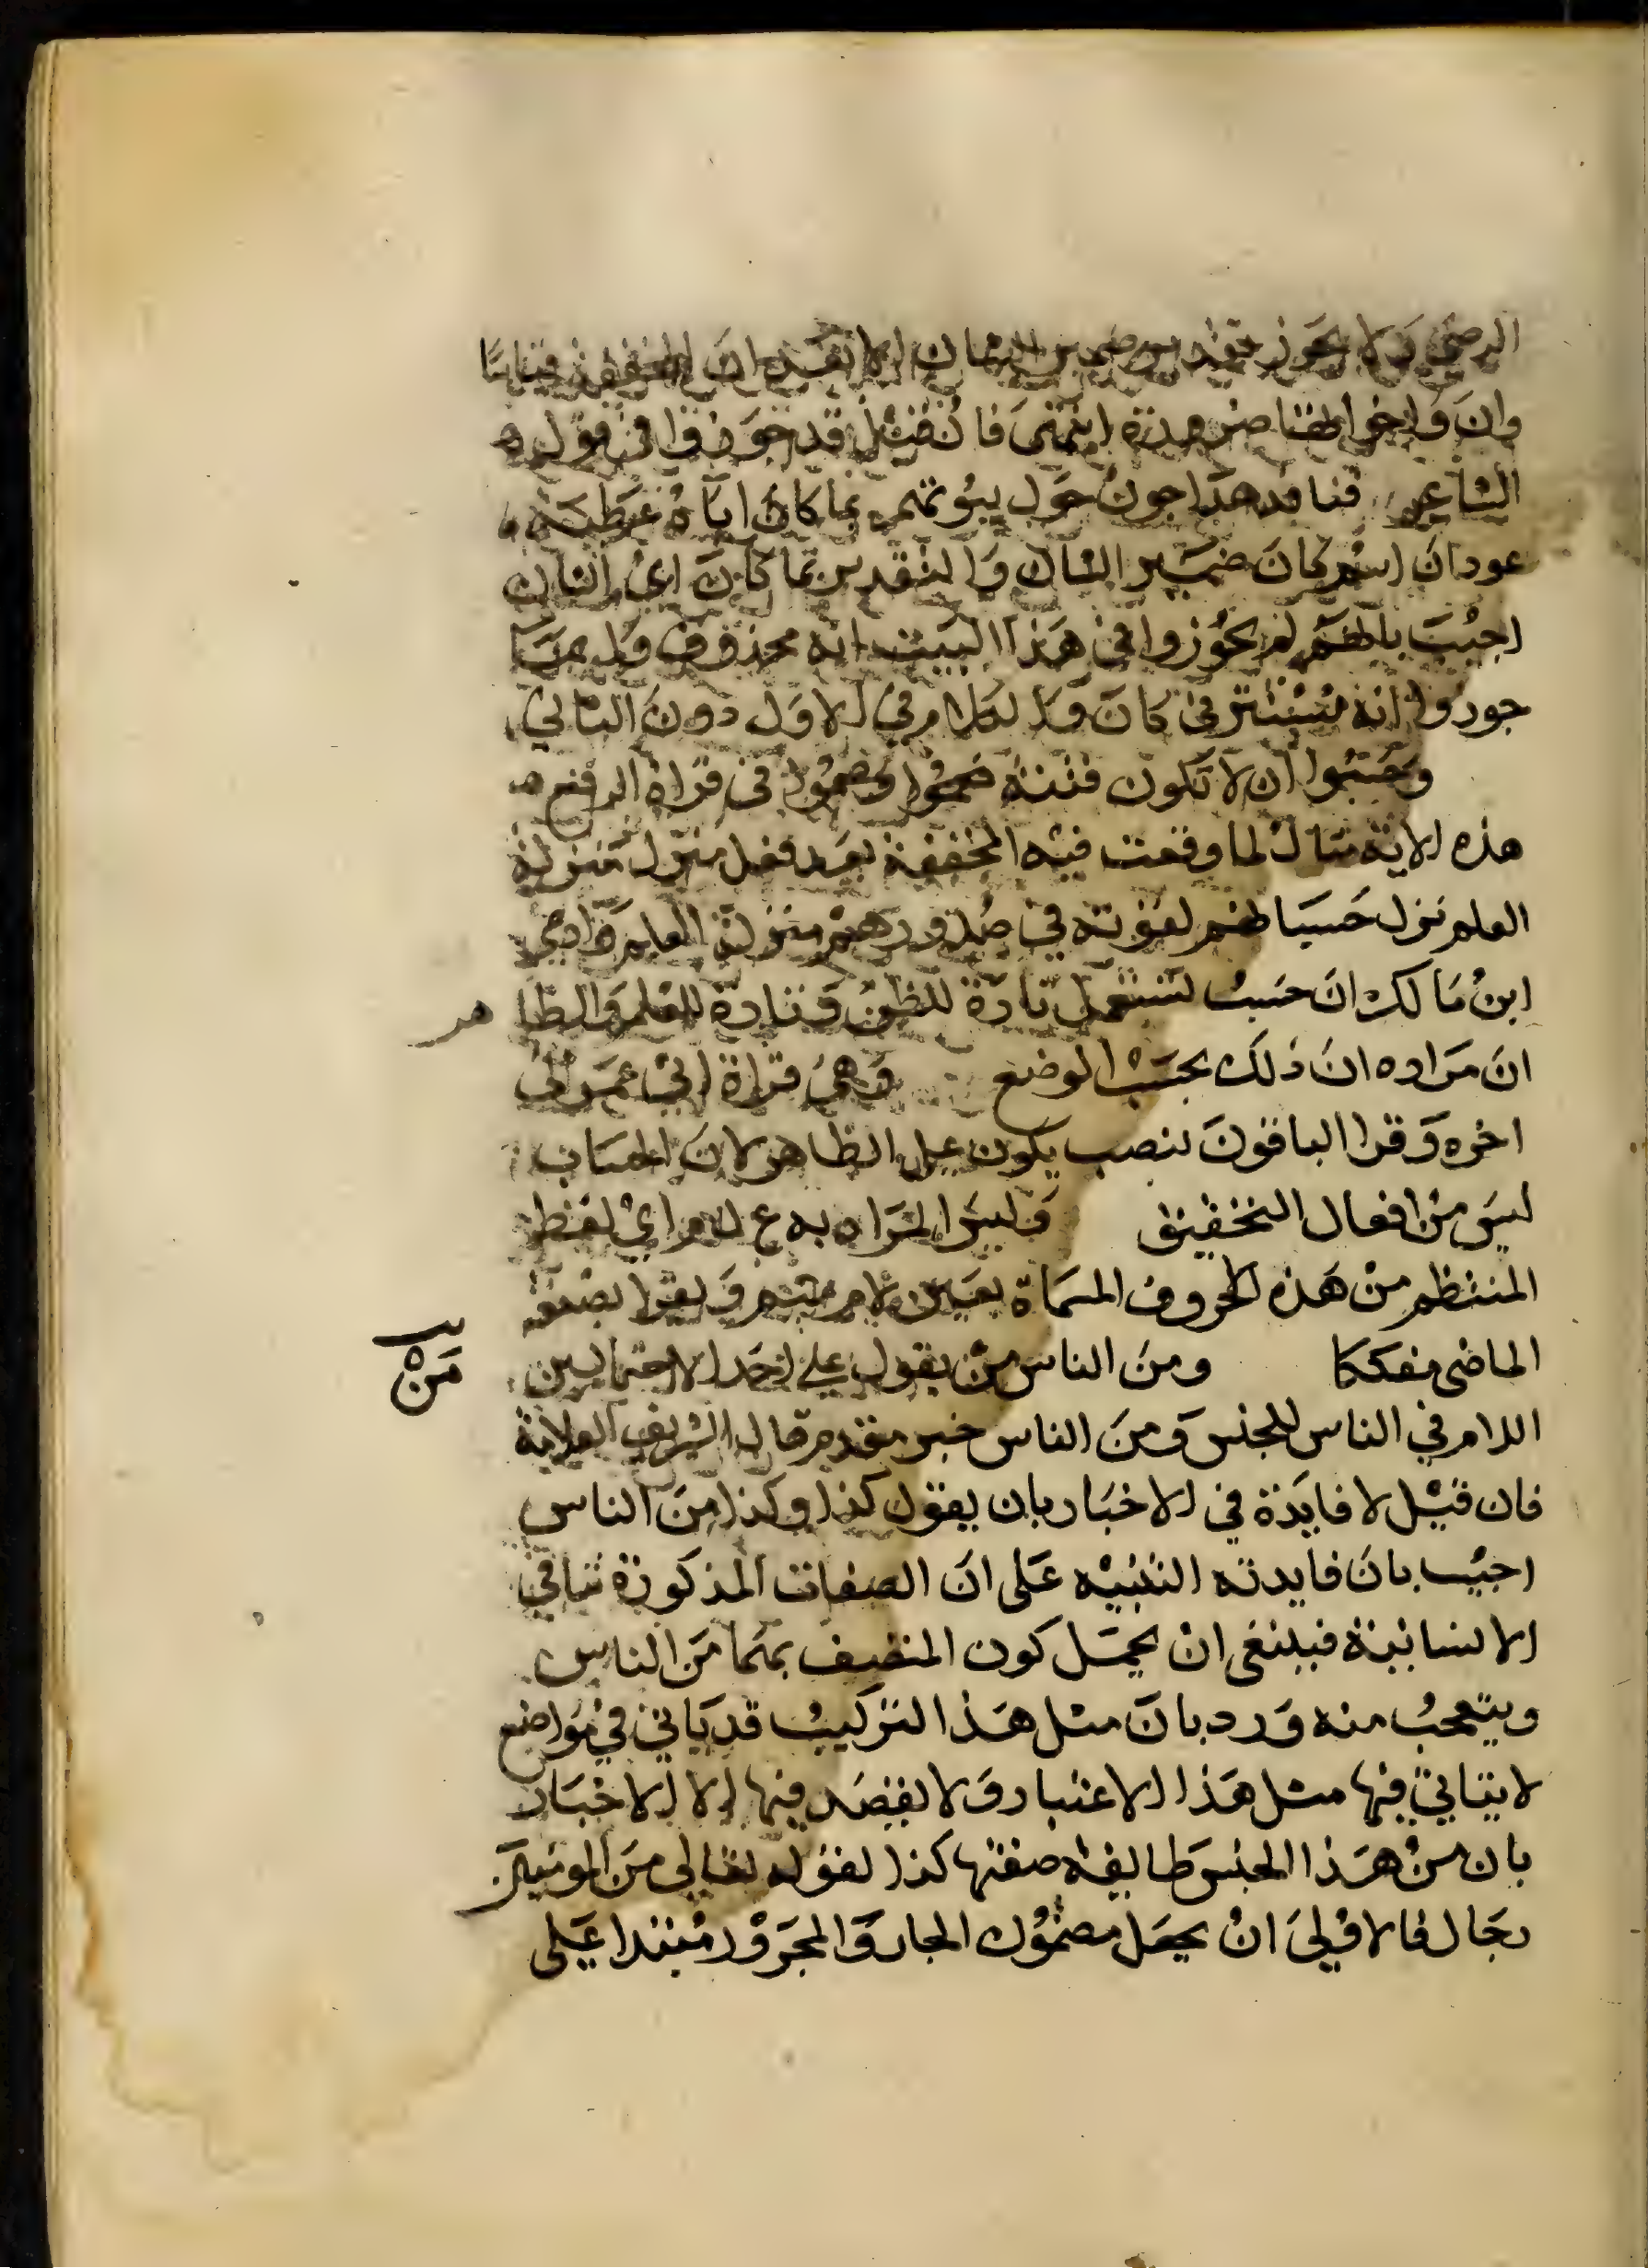 الرضي ولا يجوز تقدير ضمير الشان الا بعد ان المخففة قياسا
وان واخواتها ضرورة انتهى فان قيل قد جوزوا في قول
الشاعر قنافذ هداجون حول بيوتهم بما كان اياهم عطية
عودا ان اسم كان ضمير الشان والتقدير بما كان اي الشان
اجيب بانهم لم يجوزوا في هذا البيت انه محذوف وانما
جوزوا انه مستتر في كان والكلام في الاول دون الثاني
وحسبوا ان لا تكون فتنة فعموا وصموا في قراة الرفع
هذه الاية مثال لما وقعت فيه المخففة بعد فعل منزل منزلة
العلم نزل حسبانهم لقوته في صدورهم منزلة العلم وادعى
ابن مالك ان حسب تستعمل تارة للظن وتارة للعلم والظا هر
ان مراده ان ذلك بحسب الوضع وهي قراة ابي عمرو الى
اخره وقرا الباقون بنصب يكون على الظاهر لان الحسبان
ليس من افعال التحقيق وليس المراد به ع ل م اي لفظ
المنتظم من هذه الحروف المسماة بعين لام ميم ويقرا بصيغة
الماضي مفككا ومن الناس من يقول على احد الاحتمالين
من
اللام في الناس للجنس ومن الناس خبر مقدم قال الشريف العلامة
فان قيل لا فايدة في الاخبار بان يقول كذا وكذا من الناس
اجيب بان فايدته التنبيه على ان الصفات المذكورة تنافي
الانسانية فينبغي ان يجهل كون المتصف بها من الناس
ويتعجب منه ورد بان مثل هذا التركيب قد ياتي في مواضع
لا يتاتى فيها مثل هذا الاعتبار ولا يقصد فيها الا الاخبار
بان من هذا الجنس طايفة صفتها كذا لقوله تعالى من المومنين
رجال فالاولى ان يجعل مضمون الجار والمجرور مبتدا على